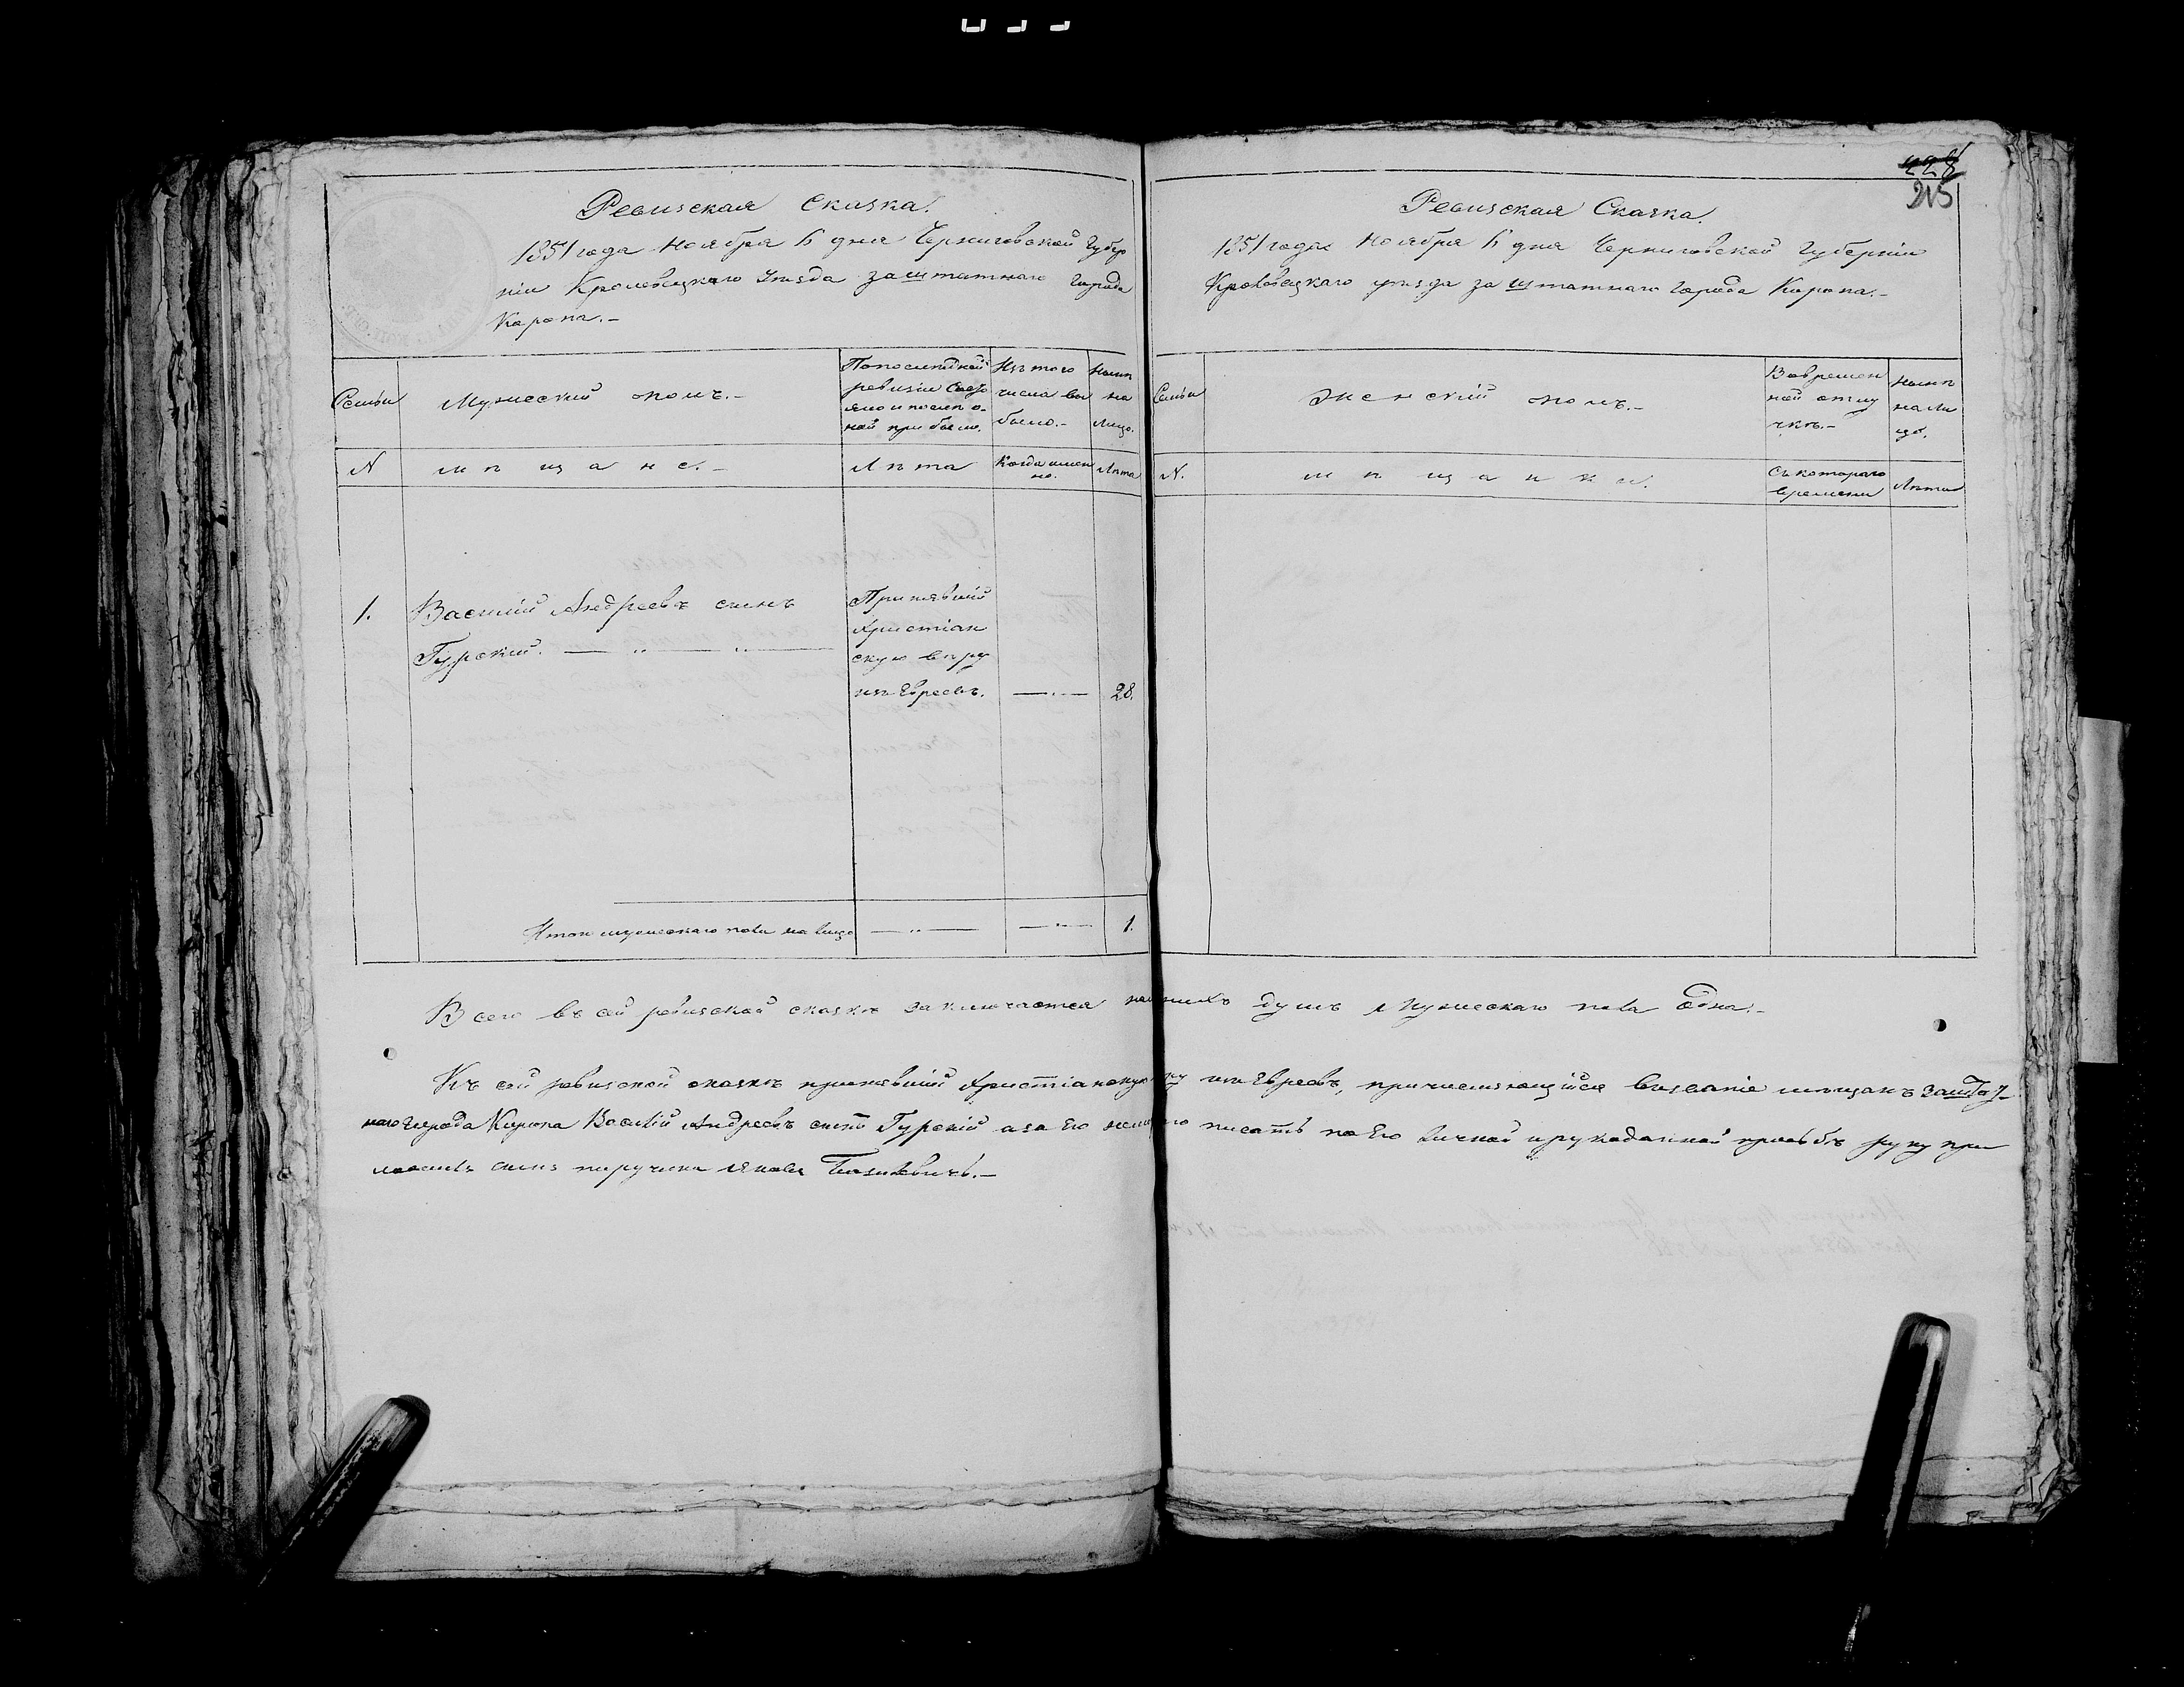 228
215
Ревизская Сказка.
1851 года Ноября 6 дня Черниговской Губер
ніи Кролевецкаго Уѣзда заштатнаго города
Коропа.-
Семьи
Мужеский полъ.-
По последней
ревизіи состо
яло и послѣ о-
ной прибыло.
Изъ того
числа вы
было.-
Нынѣ
на
лицо.
N
мѣщане.-
Лѣта
Когда имен
но.
Лѣта
1.
Василий Андреевъ сынъ
Гурский.
Принявший
Христіан
скую вѣру
изъ Евреевъ.
28.
Итого мужескаго пола на лицо
1.
Ревизская Сказка.
1851 года Ноября 6 дня Черниговской Губерніи
Кролевецкаго уѣзда заштатнаго города Коропа.-
Семьи
Женскій полъ.-
Во времен
ной отлу
чкѣ.-
Нынѣ
на ли
цо.
N.
мѣщанки.
Съ котораго
времени
Лѣта
Всего въ сей ревизской сказкѣ заключается душъ Мужескаго пола одна.-
Къ сей ревизской сказкѣ принявшій изъ Евреевъ, мѣщанъ
наго города Коропа Василій Андреевъ сынъ Гурскій а за его писать по его личной и рукоданной прозьбѣ руку при
ложилъ сынъ поручика Якова